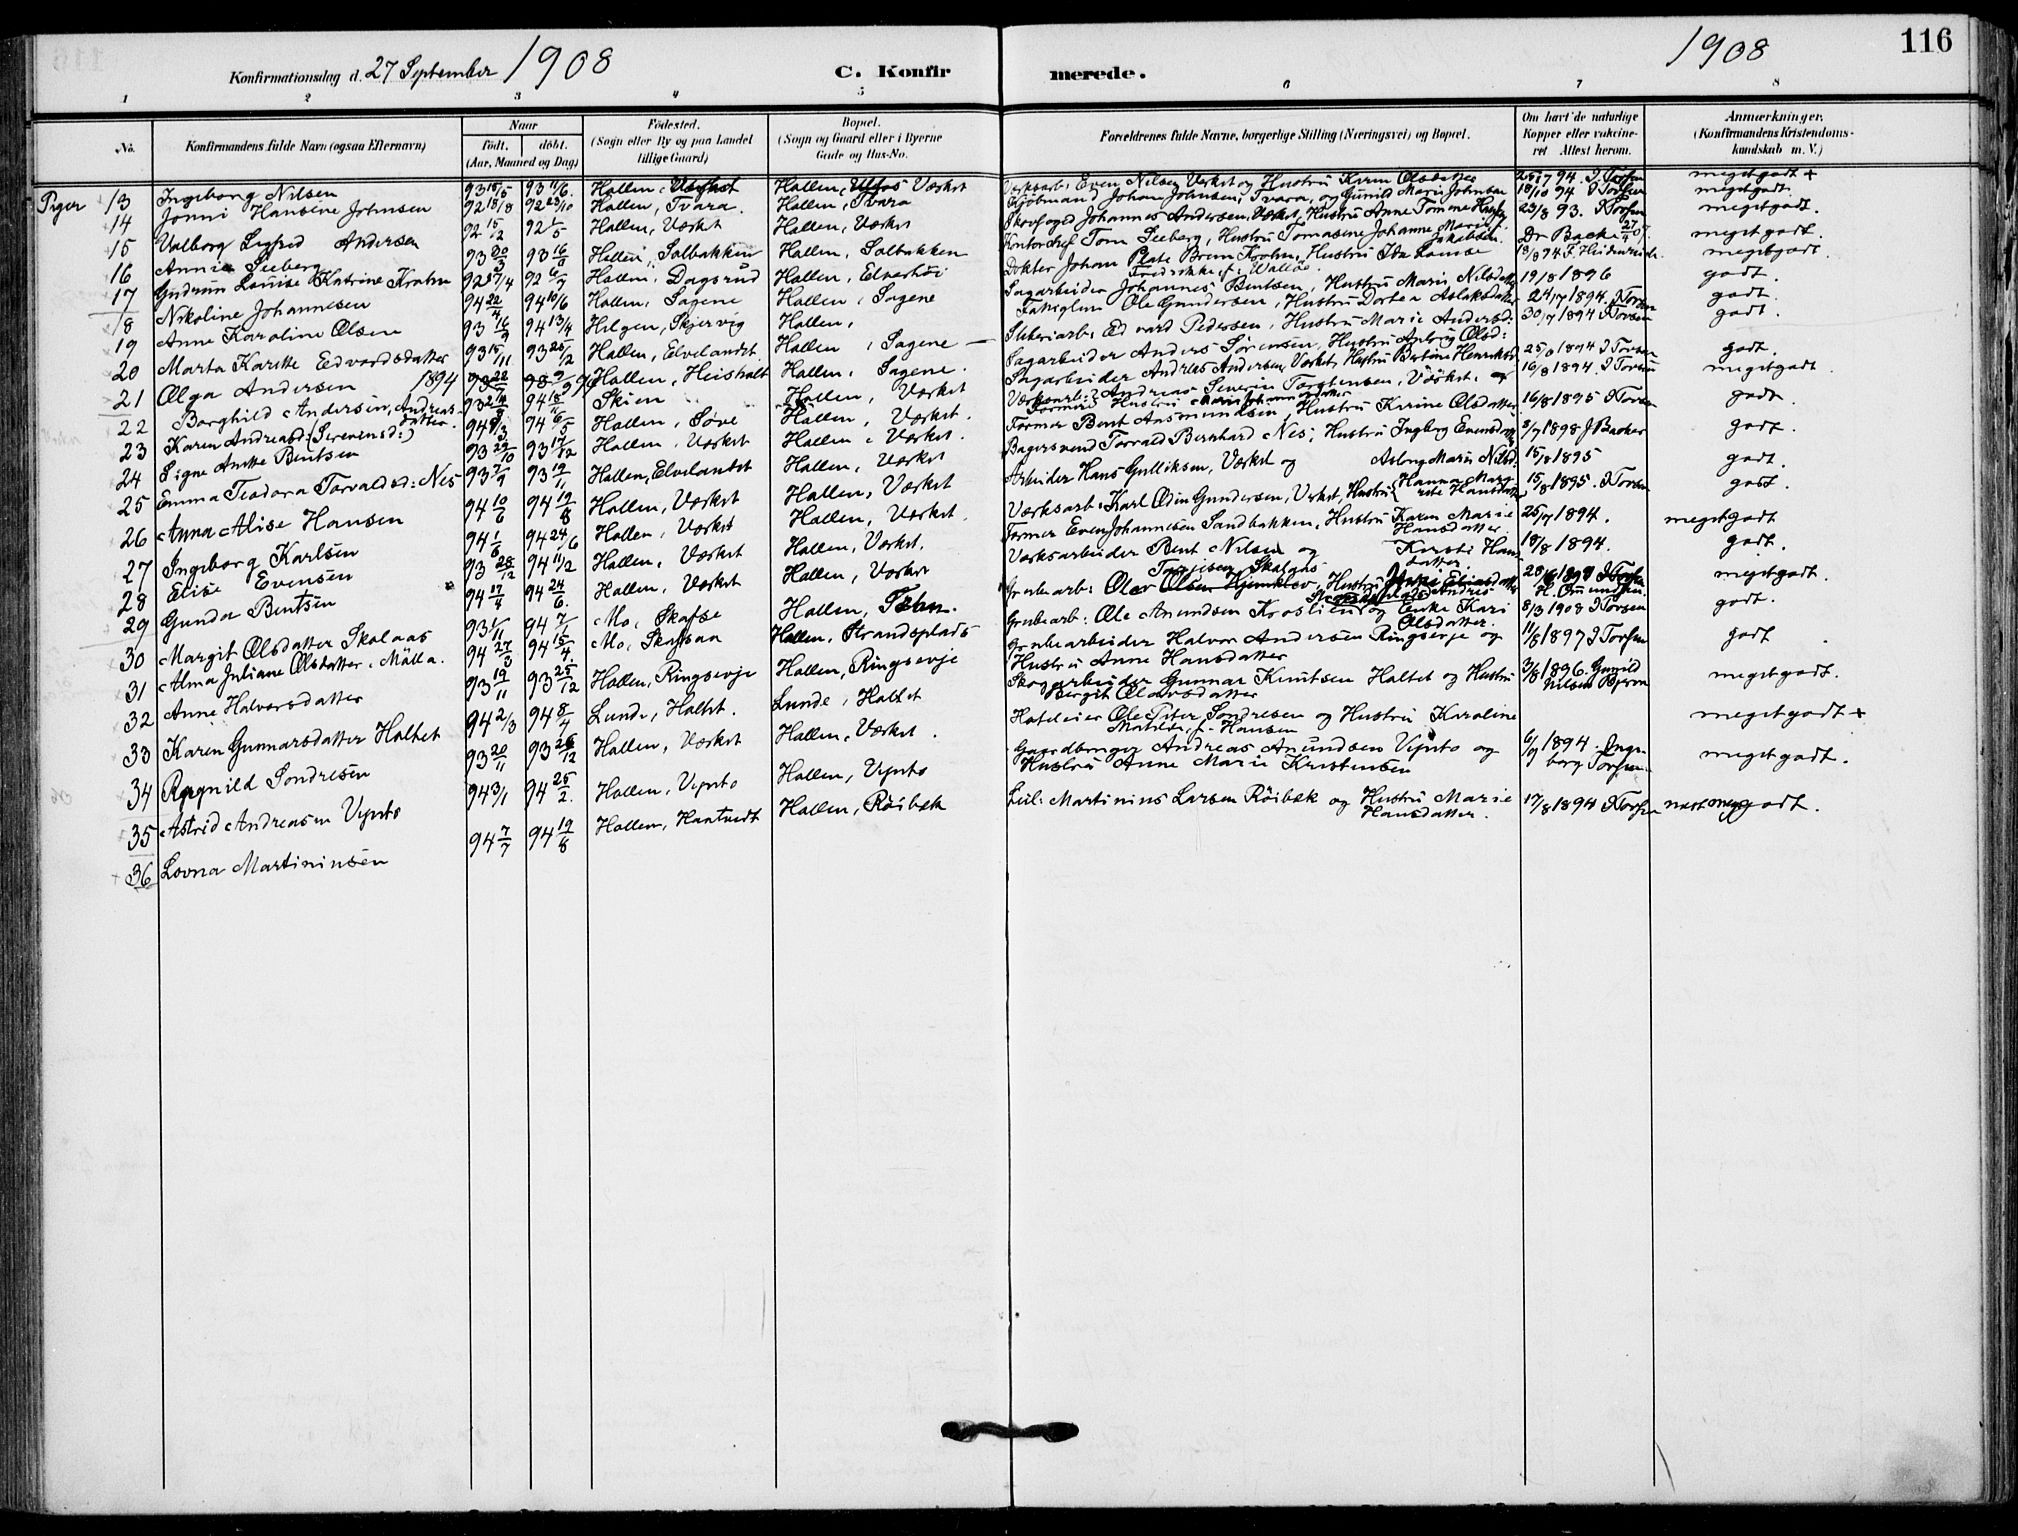 116
1908
Konfirmationsdag d. 27 September 1908
C. Konfirmerede.
1 2 3 4 5 6 7 8
No.
Konfirmandens fulde Navn (ogsaa Efternavn)
Naar
født. døbt.
(Aar, Maaned og Dag)
Fødested.
(Sogn eller By og paa Landet
tillige Gaard)
Bopæl.
(Sogn og Gaard eller i Byerne
Gade og Hus-No.
Forældrenes fulde Navne, borgerlige Stilling (Næringsvei) og Bopæl.
Om havt de naturlige
Kopper eller vaccine-
ret Attest herom.
Anmærkninger.
(Konfirmandens Kristendoms-
kundskab m. V.)
Piger
13 Ingeborg Nilsen 93 15/5 93 11/6 Hollen, Værket Hollen, Ulfos Værket Værksarb: Even Nilsen Værket og Hustru Karen Olsdatter 94. meget godt +
14 Jonni Hansine Johnsen 92 18/8 92 23/10 Hollen, Tvara. Hollen, Tvara Kjøbmand Johan Johnsen, Tvara, og Gunild Marie Johnsen 18/10 94 I Torsen meget godt.
15 Valborg Sigfred Andersen 92 15/2 92 1/5 Hollen, Værket Hollen, Værket Skovfoged Johannes Andersen, Værket, Hustru Anne Tomine 23/8 93. I Torsen meget godt.
16 Annie Seeberg 93 30/3 93 16/8 Hollen, Solbakken Hollen, Solbakken Kontorchef Tom Seeberg, Hustru Tomasine Johanne Marie Jakobsen. Dr Backe meget godt.
17 Gudrun Louise Katrine Krohn 92 Hollen, Dagsrud Hollen, Elverhøi Dokter Johan Plate Bruun Krohn, Hustru Ida Louise Fredrikke f. Walløe. meget godt.
18 Nikoline Johannesen 94 22/4 94 10/6 Hollen, Sagene Hollen, Sagene Sagarbeider Johannes Bentsen, Hustru Maria Nilsdatter 19/8 1896 godt.
19 Anne Karoline Olsen 93 16/9 94 13/4 Helgen, Skjervig Hollen, Fattiglem Ole Gundersen, Hustru Dortea Aslaksdatter 24/7 1894. I Torsen godt.
20 Marta Karette Edvardsdatter 93 15/11 93 25/12 Hollen, Elvelandet Hollen, Sagene Edvard Pedersen, Hustru Marie Andersd: 30/7 1894 I Torsen godt.
21 Olga Andersen 1894 Hollen, Heisholt Hollen, Sagene. Sagarbeider Anders Sørensen, Hustru Aslaug Olsd: 25/8 1894 I Torsen godt.
22 Borghild Andersen, Andreasdatter. 94 18/11 Skien Hollen, Værket Sagarbeider Andreas Andersen Værket, Hustru Bertine Henriksd: 16/8 1894. I Torsen meget godt.
23 Karen Andreasd: (Severensd:) 94 9/3 94 6/5 Hollen, Søve Hollen, Værket. Værksarb: Andreas Severin Torstensen, Værket. 16/8 1895 I Torsen godt.
24 Signe Anette Bentsen 93 29/10 93 17/12 Hollen, Værket Hollen, Værket. Former Bent Aasmundsen, Hustru Karine Olsdatter 3/7 1898 J Backer godt.
25 Emma Teodora Torvaldsd: Nes 93 7/9 93 12/11 Hollen, Elvelandet Hollen, Værket Bagersvend Torvald Bernhard Nes, Hustru Ingeborg Evensdatter 15/8 1895 godt.
26 Anna Alise Hansen 94 10/6 94 19/8 Hollen, Værket Hollen, Værket Arbeider Hans Gulliksen, Værket og Aslaug Marie Nilsd: 15/8 1895. I Torsen godt.
27 Ingeborg Karlsen 94 1/6 94 24/6 Hollen, Værket Hollen, Værket. Værksarb: Karl Odin Gundersen, Værket, Hustru Hanna Margrete Hansdatter 25/7 1894. meget godt
28 Elise Evensen 93 28/12 94 11/2 Hollen, Værket Hollen, Værket. Former Even Johannesen Sandbakken, Hustru Karen Marie Hansdatter 18/8 1894. godt.
29 Gunda Bentsen 94 17/4 94 24/6. Hollen, Værket Hollen, Værket Værksarbeider Bent Nilsen og Kirsti Hansdatter. meget godt.
30 Margit Olsdatter Skalaas 93 1/11 94 7/1 Mo, Skafse Hollen, Tebm. Grubearb: Olav Torgersen Skalaas, Hustru godt.
31 Alma Juliane Olsdatter, Mølla. 94 27/3 94 15/4. Mo, Skafsaa Hollen, Strandsplads Grubearb: Ole Anundsen Kroslien og Enke Kari Olsdatter. 8/3 1908 I Torsen godt.
32 Anne Halvorsdatter 93 19/11 93 25/12 Hollen, Ringsevje Hollen, Ringsevje Grubearbeider Halvor Andersen Ringsevje og Hustru Anne Hansdatter 11/8 1897 I Torsen godt.
33 Karen Gunnarsdatter Holtet 94 2/3 94 8/4 Lunde, Holtet. Lunde, Holtet Skogarbeider Gunnar Knutsen Holtet og Hustru Bergit Olavsdatter 3/8 1896. Gunild Nilsen Bjerva meget godt.
34 Ragnild Sondresen 93 20/11 93 26/12 Hollen, Værket Hollen, Værket. Hoteleier Ole Peter Sondresen og Hustru Karoline Matilde f. Hansen meget godt +
35 Astrid Andreasen Vipeto 94 3/1 94 25/2. Hollen, Vipeto Hollen, Vipeto Gaardbruger Andreas Anundsen Vipeto og Hustru Anne Marie Kristensen 6/9 1894. Ingeborg Torsen. meget godt.
36 Lovna Martininsen 94 7/7 94 19/8 Hollen, Hantvedt Hollen, Røibæk Leil: Martinius Larsen Røibæk og Hustru Marie Hansdatter. 17/8 1894 I Torsen næst meget godt.